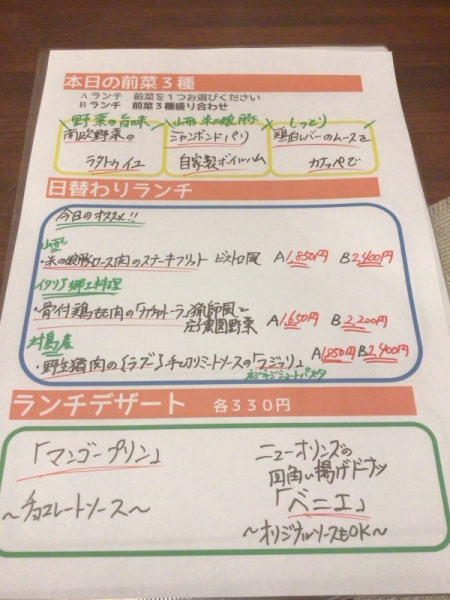 本日の前菜３種
Aランチ 前菜を１つお選びください
Bランチ 前菜３種盛り合わせ
野菜の旨味
南欧野菜の
ラタトゥイユ
山形 米の娘豚
ジャンボンドパリ
自家製ボイルハム
しっとり
鶏白レバーのムースを
カナッペで
日替わりランチ
今日のオススメ!!
山形
・米の娘豚ロース肉のステーキフリット ビストロ風 A1,850円 B2,400円
イタリア郷土料理
・骨付鶏モモ肉の「カチャトーラ」猟師風と
A1,650円 B2,200円
対馬産
・野生猪肉の《ラグー》チェリーミートソースの「フジッリ」
A1,850円 B2,400円
ランチデザート 各３３０円
「マンゴープリン」
～チョコレートソース～
ニューオリンズの
四角い揚げドーナツ
「ベニエ」
～オリジナルソースもOK～